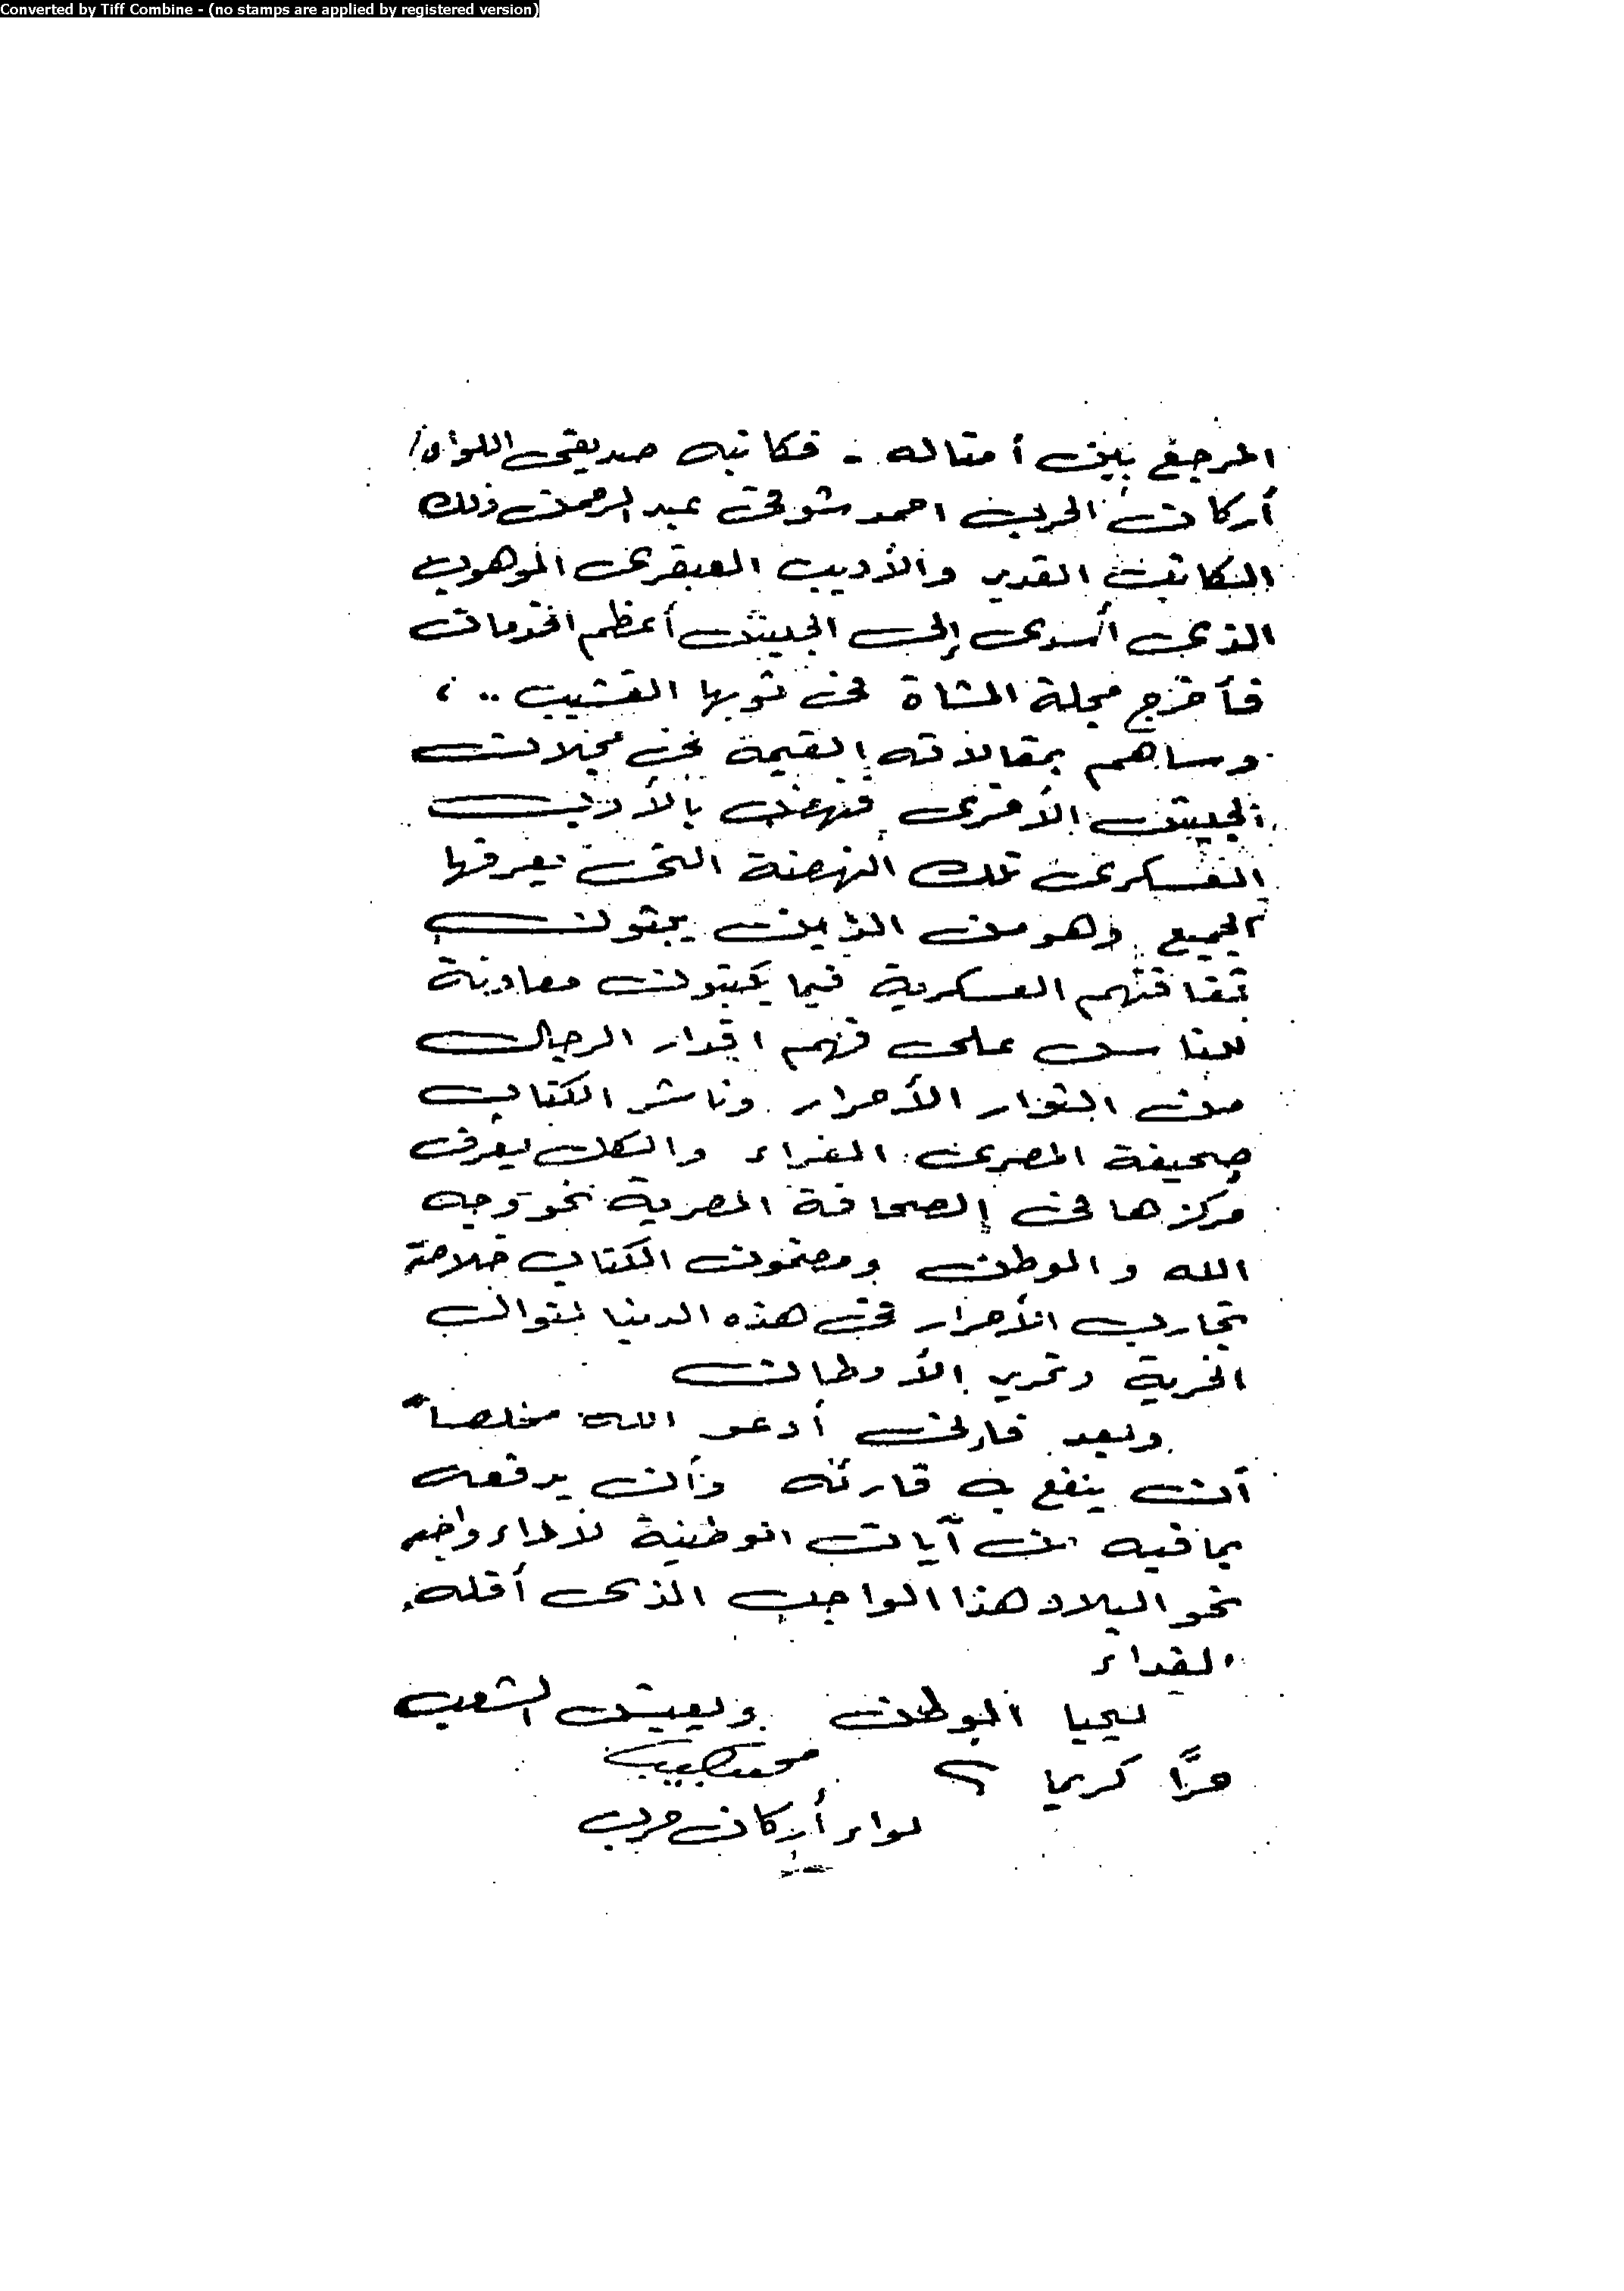 Converted by Tiff Combine - (no stamps are applied by registered version)
المرجع بين أمثاله - فكاتبه صديقى اللواء/
أركان الحرب احمد شوقى عبد الرحمن ذلك
الكاتب القدير والأديب العبقرى الموهوب
الذى أسدى إلى الجيش أعظم الخدمات
فأخرج مجلة المشاة فى ثوبها القشيب ..
وساهم بمقالاته القيمة فى مجلات
الجيش الأخرى فنهض بالأدب
العسكرى تلك النهضة التى يعرفها
الجميع وهو من الذين يبثون
ثقافتهم العسكرية فيما يكتبون معاونة
للناس على فهم اقدار الرجال
من الثوار الأحرار وناشر الكتاب
صحيفة المصرى الغراء والكل يعرف
مركزها فى الصحافة المصرية نحو وجه
الله والوطن ومضمون الكتاب خلاصة
تجارب الأحرار فى هذه الدنيا
الحرية وتحرير الأوطان
وبعد فإنى أدعو الله مخلصاً
أن ينفع به قارئه وأن يدفعه
بما فيه من آيات الوطنية لأداء واجبه
نحو البلاد هذا الواجب الذى أقله
الفداء
ليحيا الوطن وليعيش الشعب
حرًّا كريما محمد نجيب
لواء أركان حرب